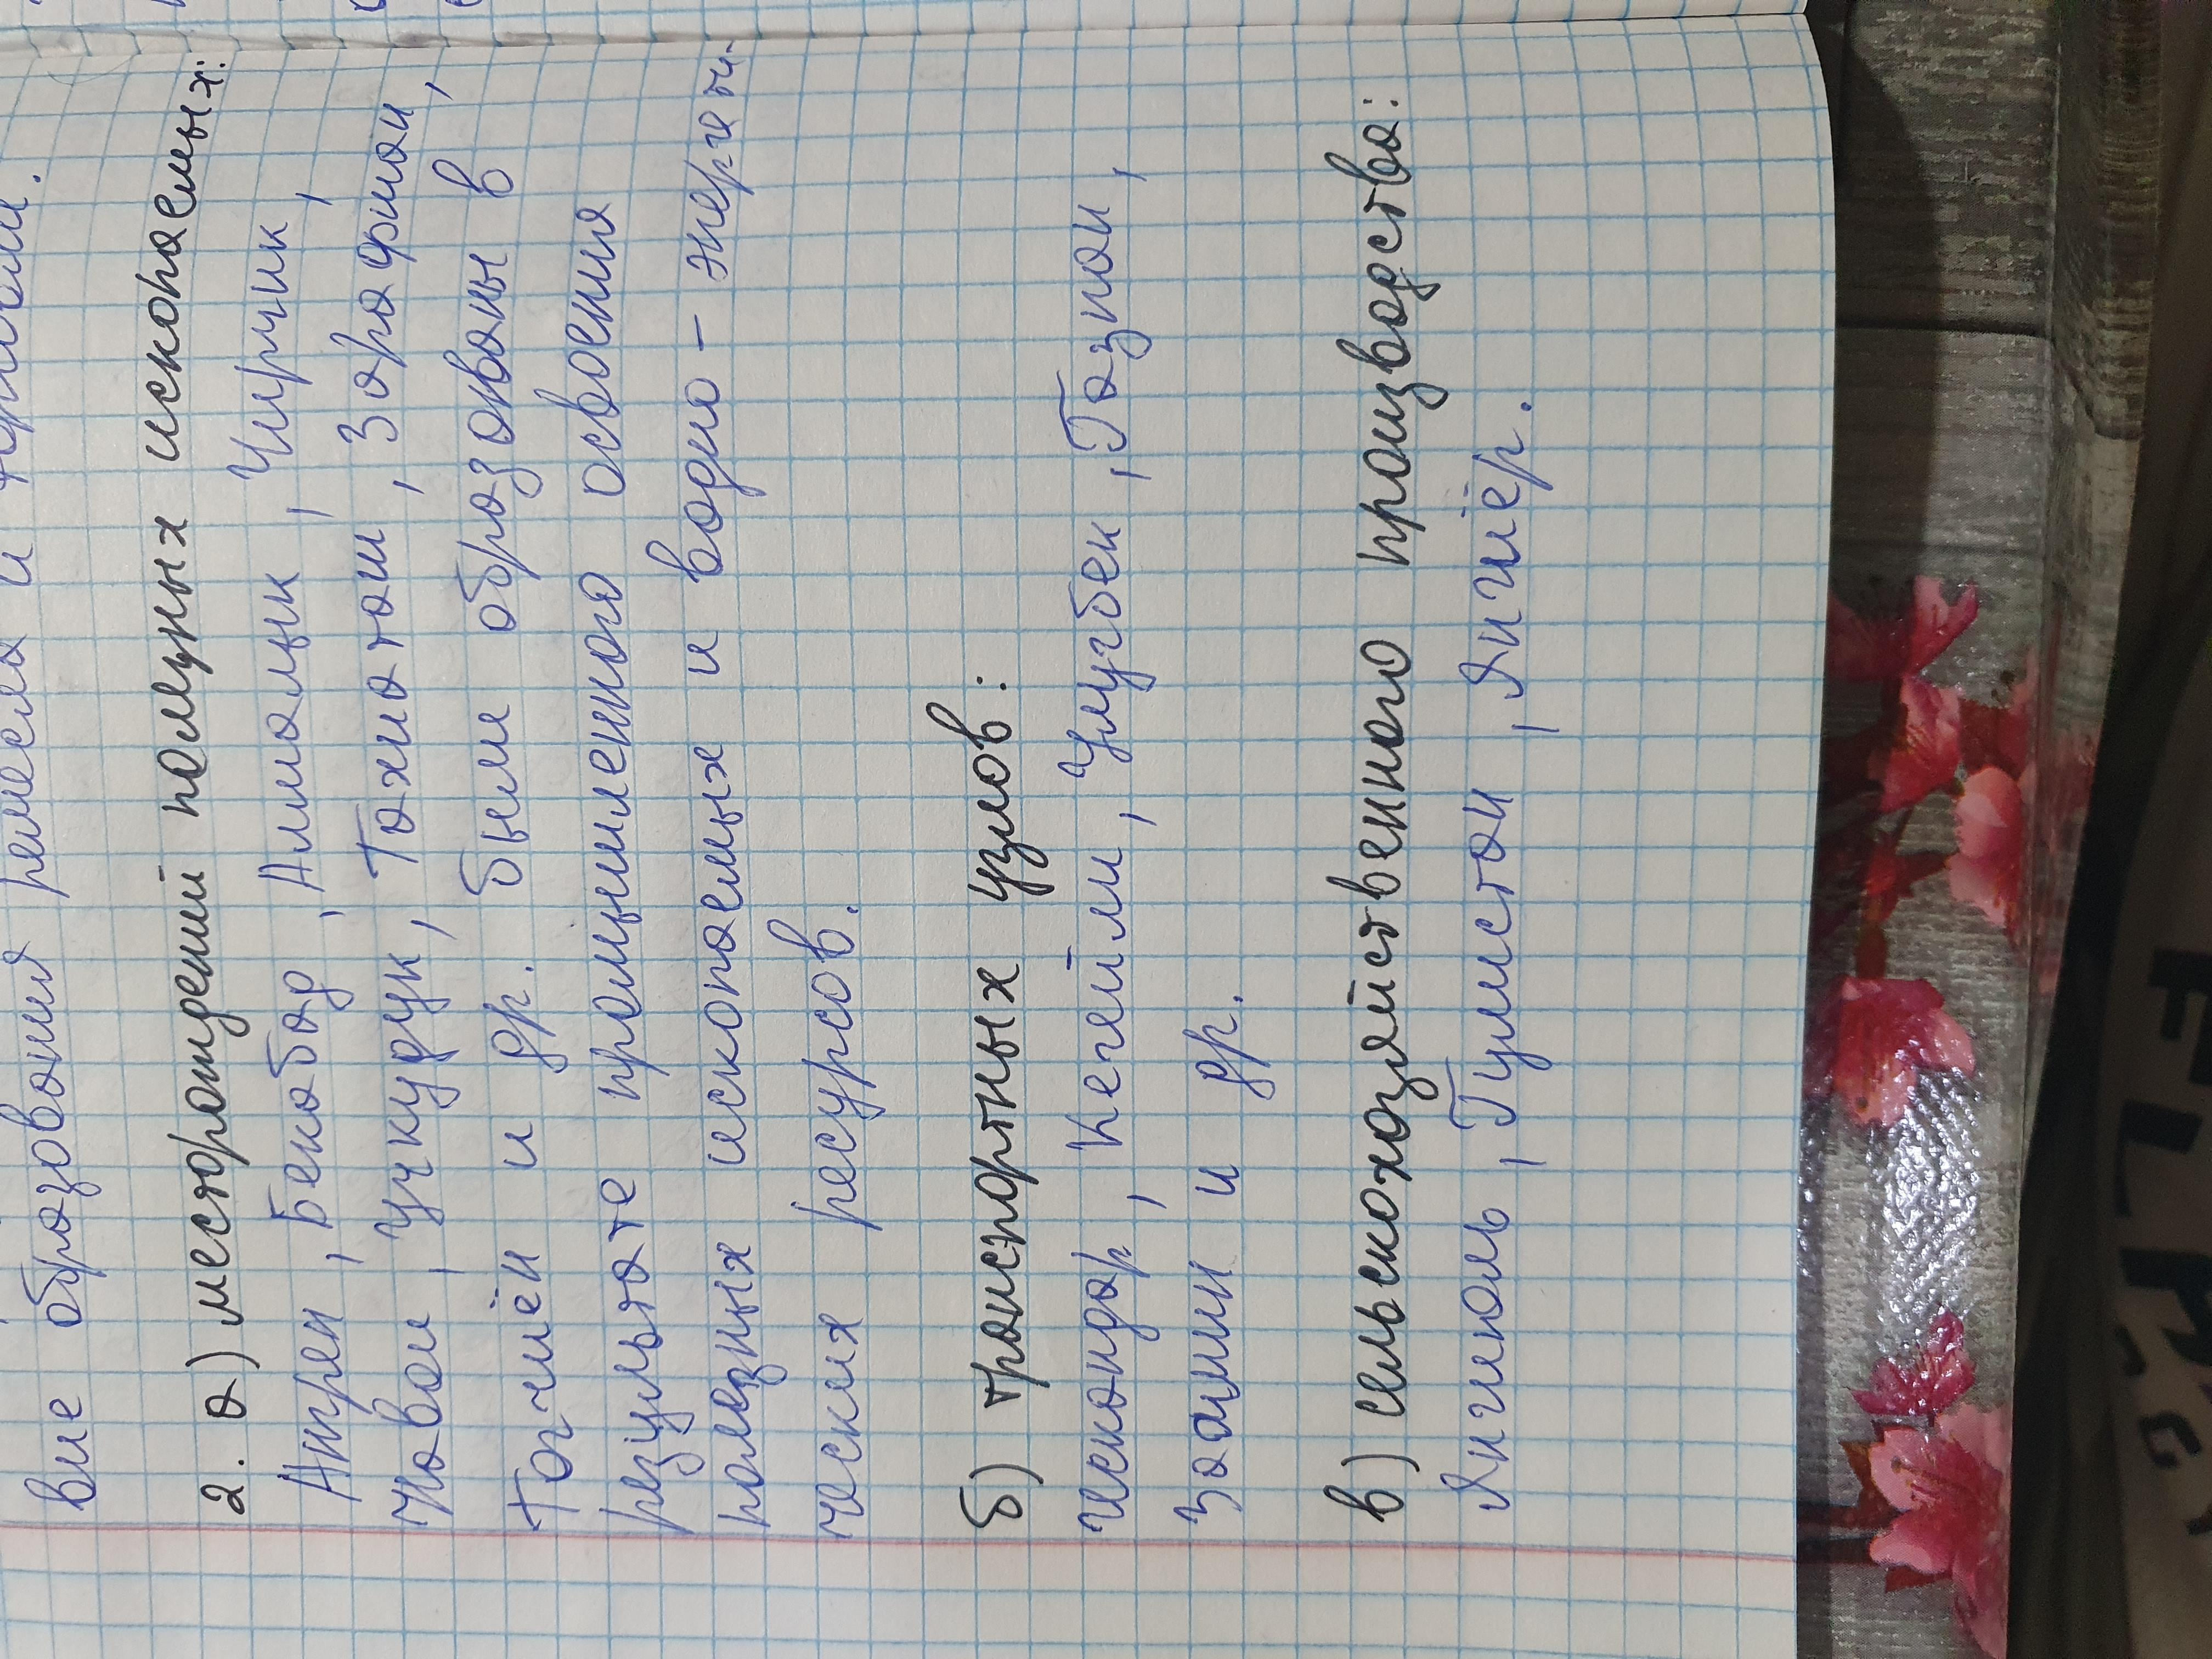 ремесла и
вие образования
2. а) месторождений полузных ископаемых:
Ангрен, Бекобад, Алмалык, Чирчик,
Навои, Учкудук, Тахиаташ, Зарафшан,
Газчиён и др. были образованы в
результате промышленного освоения
полезных ископаемых и водно-энергети-
ческих ресурсов.
б) транспортных узлов:
Искандар, Кегейли, Улугбек, Газган,
Заамин и др.
в) сельскохозяйственного производства:
Янгиюль, Гулистан, Янгиёр.